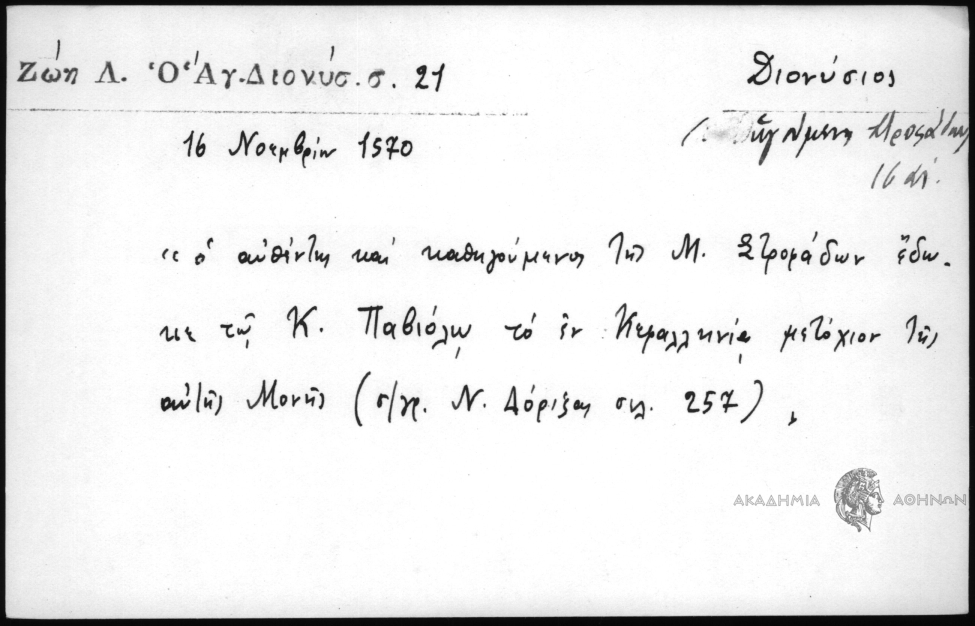 Ζώη Λ. Ὁ Ἅγ. Διονύσ. σ. 21
Διονύσιος
ἡγούμενος Στροφάδων
16 αἰ.
16 Νοεμβρίου 1570
«ὁ αὐθέντης καὶ καθηγούμενος τῆς Μ. Στροφάδων ἔδω-
κε τῷ Κ. Παβιόλῳ τό ἐν Κεφαλληνίᾳ μετόχιον τῆς
αὐτῆς Μονῆς (σ/γρ. Ν. Δόριζας σελ. 257),
ΑΚΑΔΗΜΙΑ ΑΘΗΝΩΝ